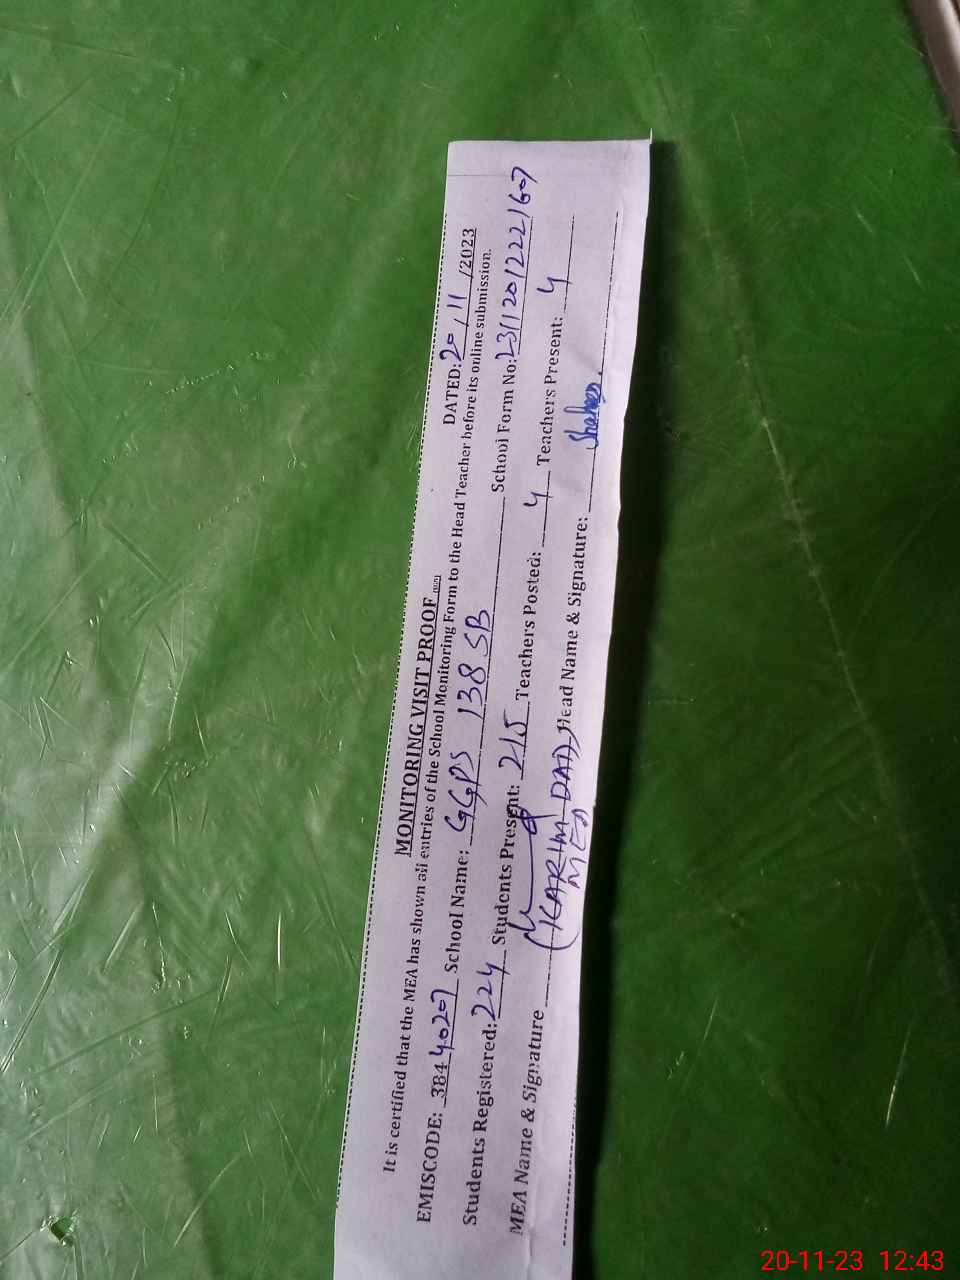 MONITORING VISIT PROOF
DATED: 20/11/2023
It is certified that the MEA has shown all entries of the School Monitoring Form to the Head Teacher before its online submission.
EMISCODE: 38440207 School Name: GGPS 138 SB School Form No: 231120122221607
Students Registered: 224 Students Present: 215 Teachers Posted: 4 Teachers Present: 4
MEA Name & Signature Head Name & Signature: Shaheen.
(KARIM DAD)
MEA
20-11-23 12:43